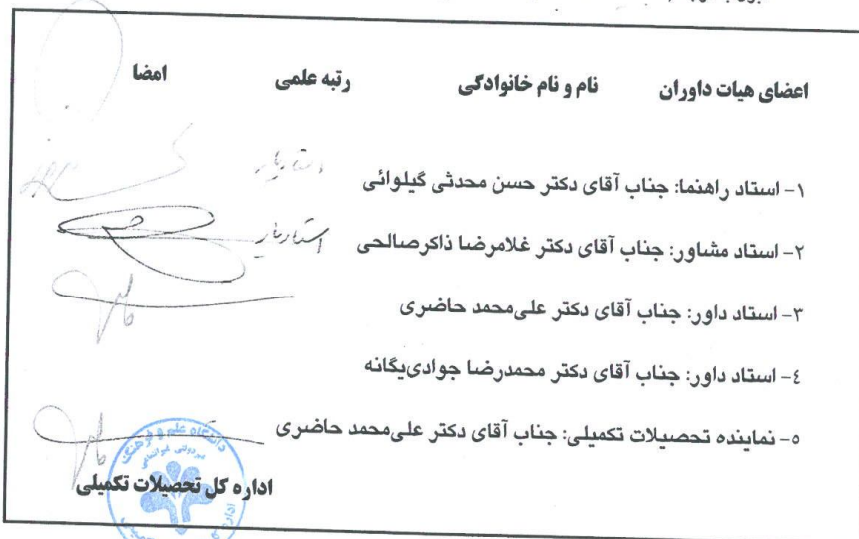 اعضای هیات داوران نام و نام خانوادگی رتبه علمی امضا
۱- استاد راهنما: جناب آقای دکتر حسن محدثی گیلوائی استادیار
۲- استاد مشاور: جناب آقای دکتر غلامرضا ذاکرصالحی استادیار
۳- استاد داور: جناب آقای دکتر علی‌محمد حاضری
٤- استاد داور: جناب آقای دکتر محمدرضا جوادی‌یگانه
٥- نماینده تحصیلات تکمیلی: جناب آقای دکتر علی‌محمد حاضری
دانشگاه علم و فرهنگ
غیردولتی غیرانتفاعی
اداره کل تحصیلات تکمیلی